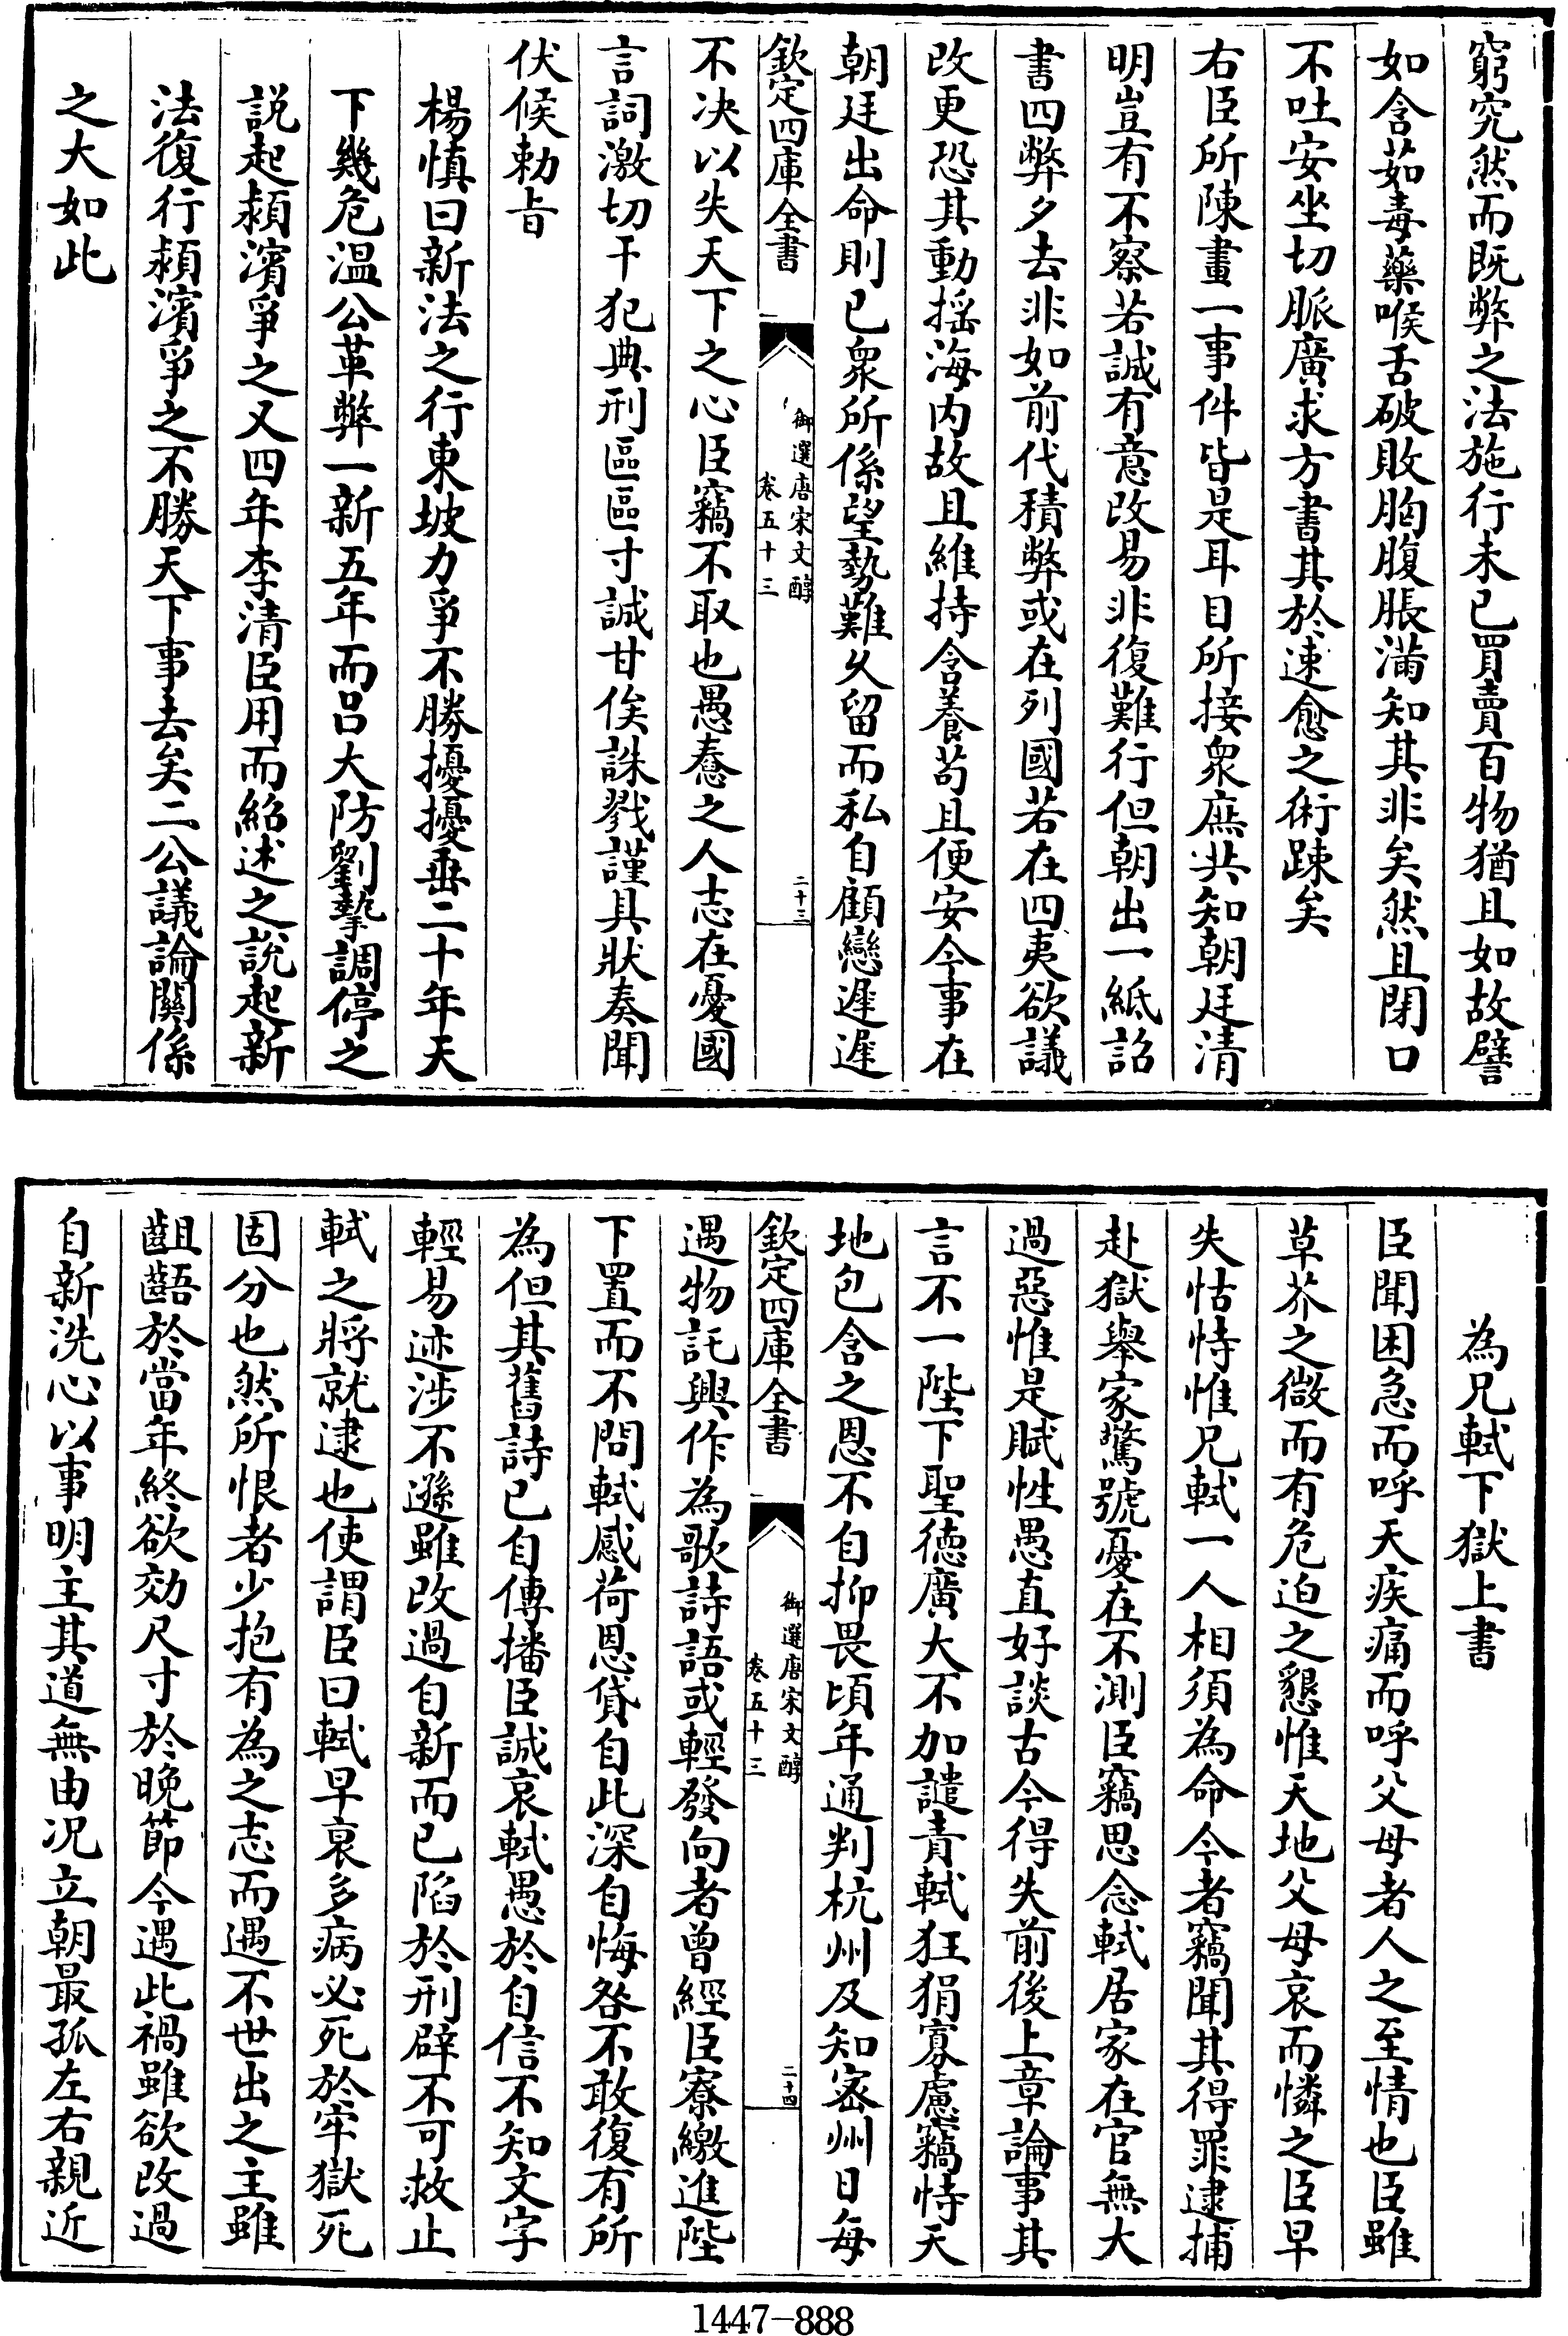 窮究然而既弊之法施行未已買賣百物猶且如故譬
如含茹毒藥喉舌破敗胸腹脹滿知其非矣然且閉口
不吐安坐切脈廣求方書其於速愈之術踈矣
右臣所陳畫一事件皆是耳目所接衆庶共知朝廷清
明豈有不察若誠有意改易非復難行但朝出一紙詔
書四弊夕去非如前代積弊或在列國若在四夷欲議
改更恐其動揺海内故且維持含養苟且便安今事在
朝廷出命則已衆所係望勢難久留而私自顧戀遲遲
欽定四庫全書
御選唐宋文醇
卷五十三
二十三
不决以失天下之心臣竊不取也愚惷之人志在憂國
言詞激切干犯典刑區區寸誠甘俟誅戮謹具狀奏聞
伏候勅㫖
楊慎曰新法之行東坡力爭不勝擾擾垂二十年天
下幾危温公革弊一新五年而吕大防劉摯調停之
説起潁濱爭之又四年李清臣用而紹述之説起新
法復行潁濱爭之不勝天下事去矣二公議論關係
之大如此
為兄軾下獄上書
臣聞困急而呼天疾痛而呼父母者人之至情也臣雖
草芥之微而有危迫之懇惟天地父母哀而憐之臣早
失怙恃惟兄軾一人相須為命今者竊聞其得罪逮捕
赴獄舉家驚號憂在不測臣竊思念軾居家在官無大
過惡惟是賦性愚直好談古今得失前後上章論事其
言不一陛下聖徳廣大不加譴責軾狂狷寡慮竊恃天
地包含之恩不自抑畏頃年通判杭州及知密州日每
欽定四庫全書
御選唐宋文醇
卷五十三
二十四
遇物託興作為歌詩語或輕發向者曾經臣寮繳進陛
下置而不問軾感荷恩貸自此深自悔咎不敢復有所
為但其舊詩已自傳播臣誠哀軾愚於自信不知文字
輕易迹涉不遜雖改過自新而已陷於刑辟不可救止
軾之將就逮也使謂臣曰軾早衰多病必死於牢獄死
固分也然所恨者少抱有為之志而遇不世出之主雖
齟齬於當年終欲効尺寸於晚節今遇此禍雖欲改過
自新洗心以事明主其道無由况立朝最孤左右親近
1447-888